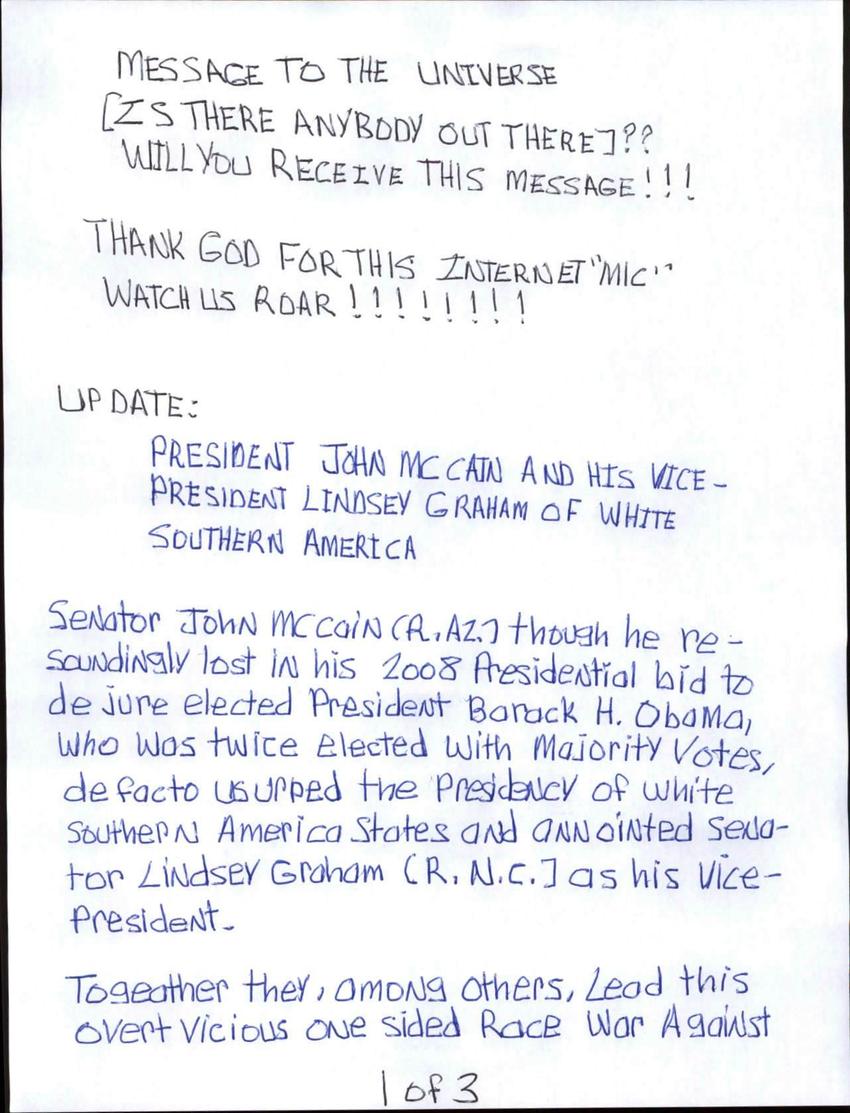 MESSAGE TO THE UNIVERSE
[IS THERE ANYBODY OUT THERE]??
WILL YOU RECEIVE THIS MESSAGE!!!
THANK GOD FOR THIS INTERNET "MIC"
WATCH US ROAR!!!!!!!!
UPDATE:
PRESIDENT JOHN MCCAIN AND HIS VICE-
PRESIDENT LINDSEY GRAHAM OF WHITE
SOUTHERN AMERICA
Senator John McCain (R.AZ.] though he re-
soundingly lost in his 2008 Presidential bid to
de jure elected President Barack H. Obama,
who was twice elected with Majority Votes,
de facto usurped the Presidency of white
Southern America States and annointed Sena-
tor Lindsey Graham [R. N.C.] as his Vice-
President.
Togeather they, among others, Lead this
overt vicious one sided Race War Against
1 of 3